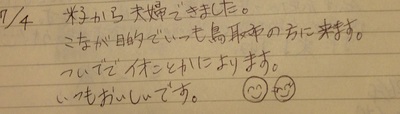 7/4 米子から夫婦できました。
こなが目的でいつも鳥取市の方に来ます。
ついでで イオンとかによります。
いつもおいしいです。